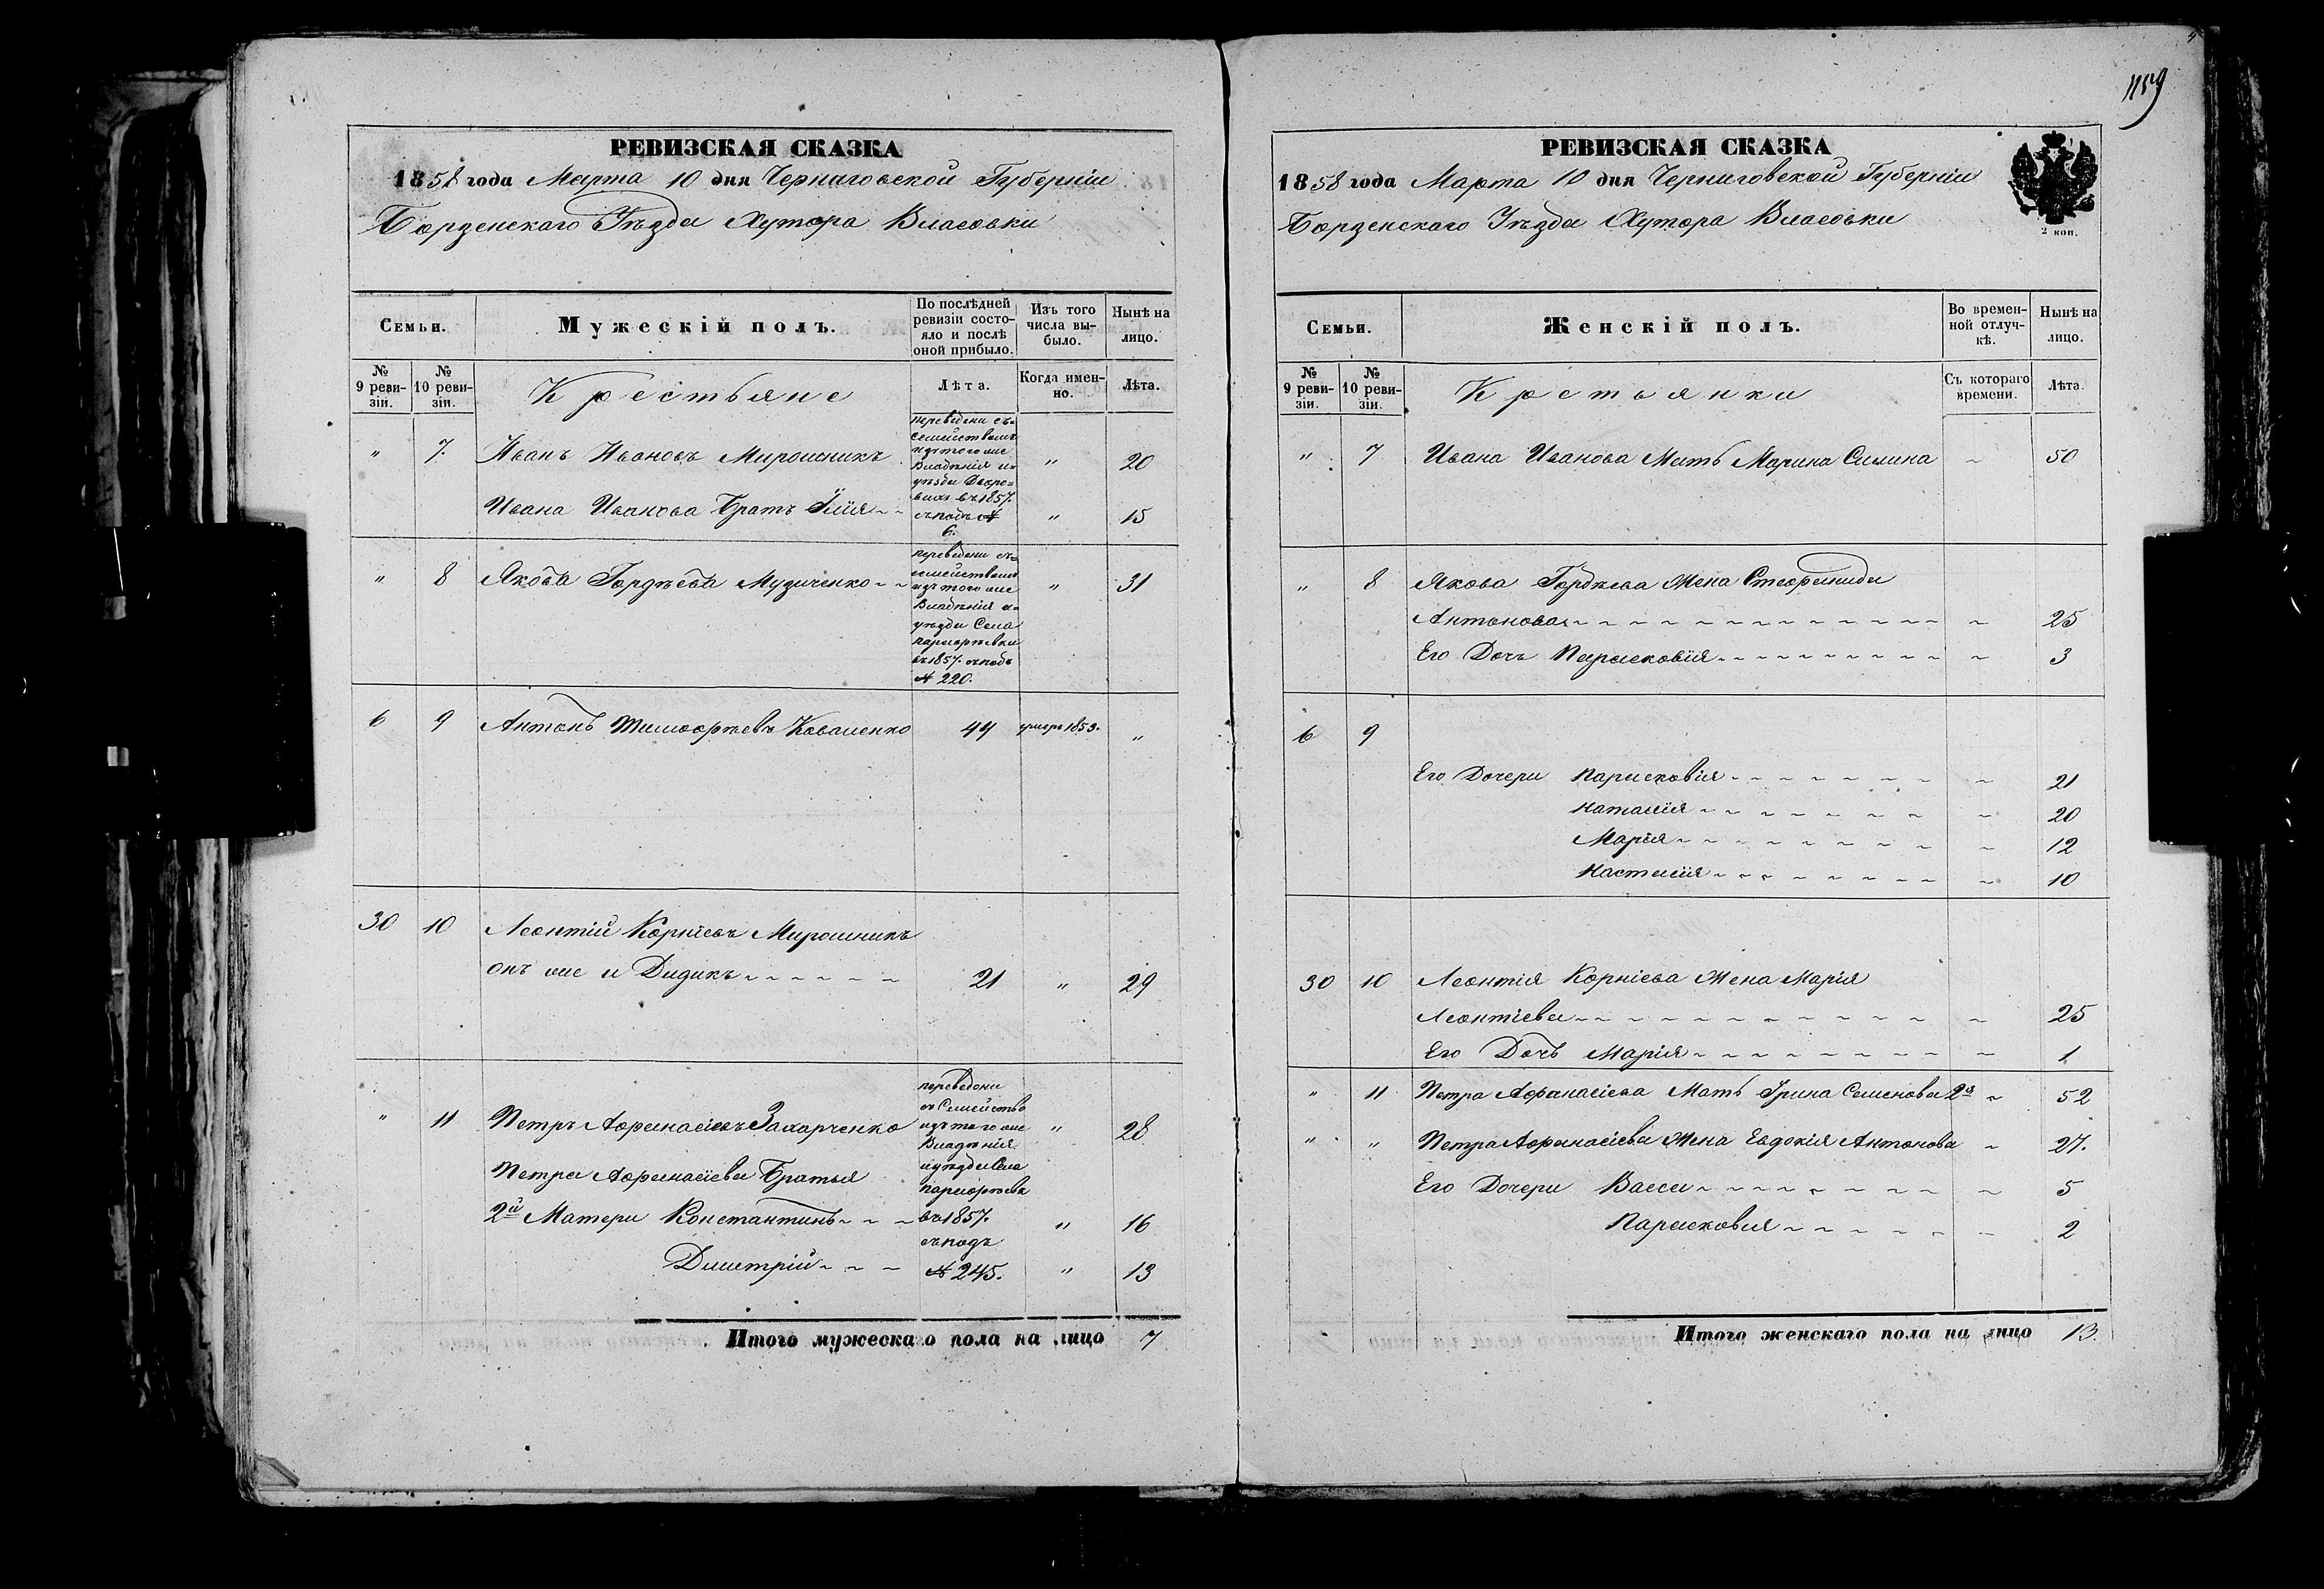 РЕВИЗСКАЯ СКАЗКА
1858 года Марта 10 дня Черниговской Губерніи
Борзенского Уѣзда Хутора Власовки
Семьи.
Мужескій полъ.
По послѣдней ревизіи состояло и послѣ оной прибыло.
Изъ того числа выбыло.
Нынѣ на лицо.
№ 9 ревизіи.
№ 10 ревизіи.
Крестьяне
Лѣта.
Когда именно.
Лѣта.
" 7. Иванъ Ивановъ Мирошникъ " 20
Ивана Иванова Братъ Илія " 15
переведени съ
семействомъ
изъ того же
Владѣнія и
уѣзда
въ 1857.
съ подъ №
6.
" 8 Якова Гордѣева Музиченко " 31
переведени съ
семействомъ
изъ того же
Владѣнія и
уѣзда Села
въ 1857. съ подъ
№ 220.
6 9 Антонъ Тимофѣевъ Коваленко 44 умеръ 1853. "
30 10 Леонтій Корніевъ Мирошникъ
онъ же и Дидикъ 21 " 29
" 11 Петръ Афанасіевъ Захарченко " 28
Петра Афанасіева Братья
2й Матери Константинъ " 16
Дмитрій " 13
переведени
съ Семейство
изъ того же
Владѣнія
и уѣзда Села
въ 1857.
съ подъ
№ 245.
Итого мужескаго пола на лицо 7
1159
РЕВИЗСКАЯ СКАЗКА
1858 года Марта 10 дня Черниговской Губерніи
Борзенского Уѣзда Хутора Власовки
2 коп.
Семьи.
Женскій полъ.
Во временной отлучкѣ.
Нынѣ на лицо.
№ 9 ревизіи.
№ 10 ревизіи.
Крестьянки
Съ котораго времени.
Лѣта.
" 7 Ивана Иванова Мать Марина Силина 50
" 8 Якова Гордѣева Жена Стефанида
Антонова 25
Его Дочь Парасковія 3
6 9
Его Дочери Парасковія 21
Наталія 20
Марія 12
Настасія 10
30 10 Леонтія Корніева Жена Марія
Леонтіева 25
Его Дочь Марія 1
" 11 Петра Афанасіева Мать Ірина Семенова 2я 52
" " Петра Афанасіева Жена Евдокія Антонова 27.
Его Дочери Васса 5
Парасковія 2
Итого женскаго пола на лицо 13.